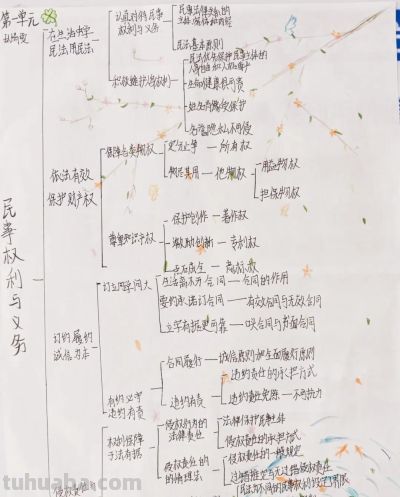 第一单元
民事权利与义务
在生活中学
民法用民法
认真对待民事
权利与义务
民法基本原则
积极维护人身权利
生命健康权可贵
姓名肖像受保护
名誉隐私不可侵
依法有效
保护财产权
保障各类物权
所有权
物尽其用
他物权
用益物权
担保物权
尊重知识产权
保护创作
著作权
激励创新
专利权
点石成金
商标权
订约履约
诚信为本
订立合同学问大
生活离不开合同
合同的作用
要约承诺订合同
有效合同与无效合同
立字有据更可靠
口头合同与书面合同
有约必守
违约有责
合同履行
诚信原则和全面履行原则
违约有责
违约责任的承担方式
违约责任免除
不可抗力
侵权责任与
权利保障
于法有据
侵权行为的
法律责任
法律保护民事主体
侵权责任的承担方式
侵权责任的
的情理法
侵权责任的一般规定
过错推定与无过错侵权责任
tuhuaba.com